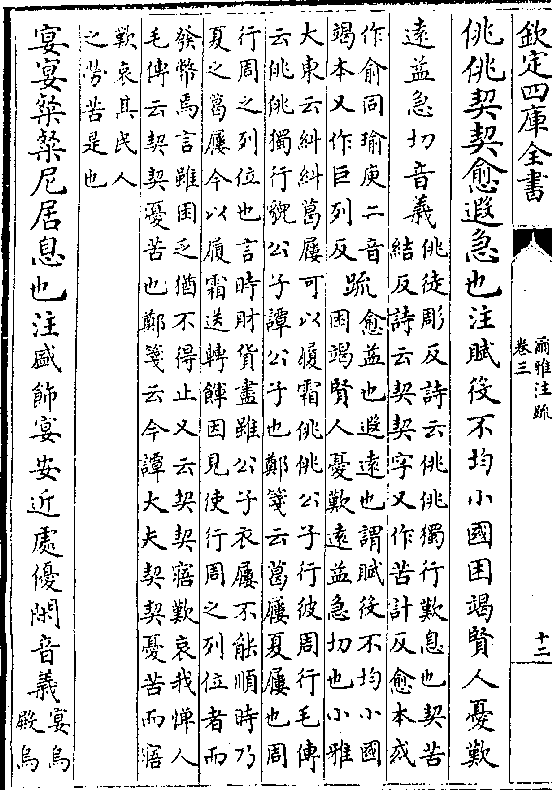 欽定四庫全書
爾雅注疏
卷三
十二
佻佻契契愈遐急也注賦役不均小國困竭賢人憂歎
遠益急切音義
佻徒彫反詩云佻佻獨行歎息也契苦
結反詩云契契字又作苦計反愈本或
作俞同瑜庾二音
竭本又作巨列反
疏
愈益也遐遠也謂賦役不均小國
困竭賢人憂歎遠益急切也小雅
大東云糾糾葛屨可以履霜佻佻公子行彼周行毛傳
云佻佻獨行貌公子譚公子也鄭箋云葛屨夏屨也周
行周之列位也言時財貨盡雖公子衣屨不能順時乃
夏之葛屨今以履霜送轉餫因見使行周之列位者而
發幣焉言雖困乏猶不得止又云契契寤歎哀我憚人
毛傳云契契憂苦也鄭箋云今譚大夫契契憂苦而寤
歎哀其民人
之勞苦是也
宴宴粲粲尼居息也注盛飾宴安近處優閑音義
宴烏
殿烏